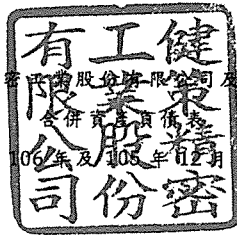 健策精密
工業股份
有限公司
密工業股份有限公司及
合併資產負債表
106 年及 105 年 12 月